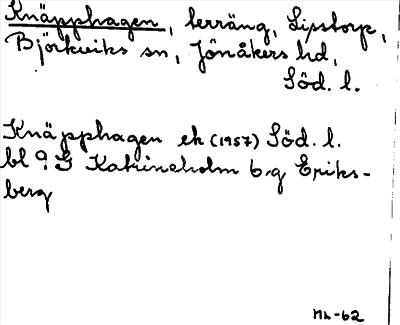 Knäpphagen, terräng, Lipstorp,
Björkviks sn, Jönåkers hd,
Söd. l.
Knäpphagen ek (1957) Söd. l.
bl 9 G Katrineholm 6 g Eriks-
berg
-62